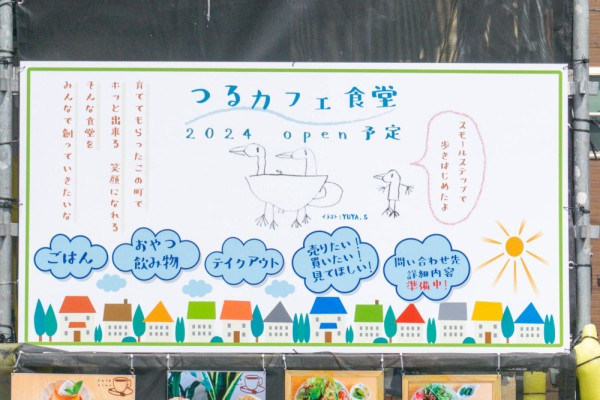 つるカフェ食堂
2024 open予定
育ててもらったこの町で
ホッと出来る 笑顔になれる
そんな食堂を
みんなで創っていきたいな
スモールステップで
歩きはじめたよ
イラスト:YUYA.S
ごはん
おやつ
飲み物
テイクアウト
売りたい!
買いたい!
見てほしい!
問い合わせ先
詳細内容
準備中!